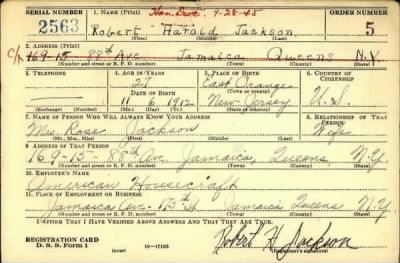 SERIAL NUMBER
1. NAME (Print) Hon. Disc. 9-28-45
ORDER NUMBER
2563
Robert Harold Jackson
5
(First) (Middle) (Last)
2. ADDRESS (Print)
C/A 169-15 88th Ave Jamaica Queens N.Y.
(Number and street or R. F. D. number) (Town) (County) (State)
3. TELEPHONE
4. AGE IN YEARS
5. PLACE OF BIRTH
6. COUNTRY OF CITIZENSHIP
27
East Orange
(Town or county)
DATE OF BIRTH
11 6 1912
New Jersey
U.S.
(Exchange) (Number)
(Mo.) (Day) (Yr.)
(State or country)
7. NAME OF PERSON WHO WILL ALWAYS KNOW YOUR ADDRESS
8. RELATIONSHIP OF THAT PERSON
Mrs. Rose Jackson
Wife
(Mr., Mrs., Miss) (First) (Middle) (Last)
9. ADDRESS OF THAT PERSON
169-15- 88th Ave. Jamaica, Queens N.Y.
(Number and street or R. F. D. number) (Town) (County) (State)
10. EMPLOYER'S NAME
American Housecraft
11. PLACE OF EMPLOYMENT OR BUSINESS
Jamaica Ave Jamaica Queens N.Y.
(Number and street or R. F. D. number) (Town) (County) (State)
I AFFIRM THAT I HAVE VERIFIED ABOVE ANSWERS AND THAT THEY ARE TRUE.
REGISTRATION CARD
D. S. S. Form 1
(over)
16-17105
Robert H. Jackson
(Registrant's signature)